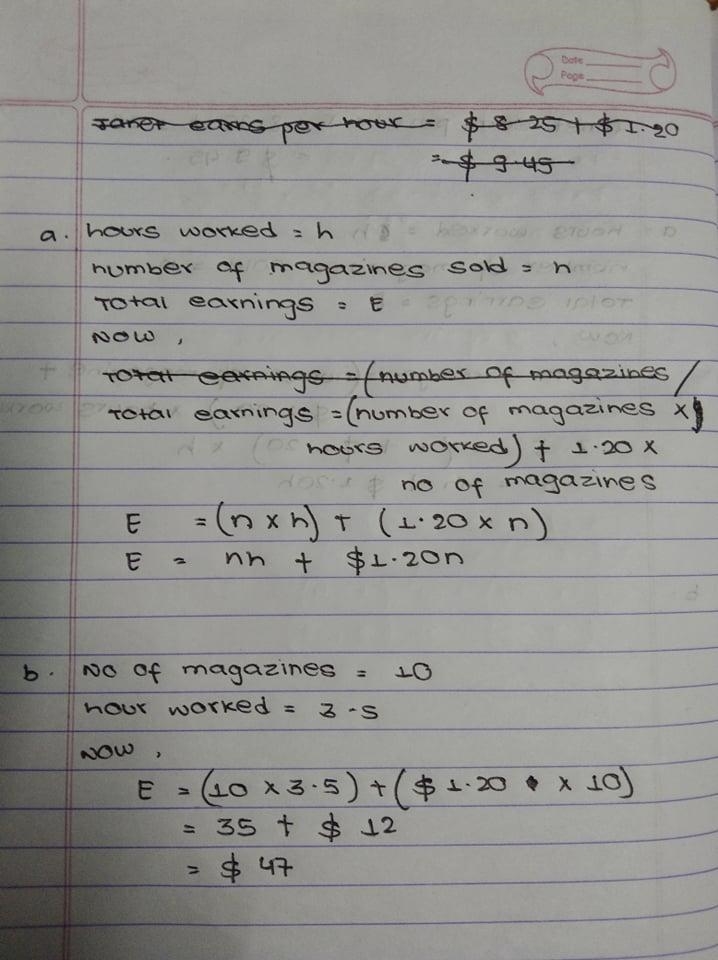 Date
Page
Janet earns per hour = $ 8.25 + $ 1.20
= $ 9.45
a. hours worked = h
number of magazines sold = n
Total earnings = E
Now,
Total earnings = (number of magazines /
Total earnings = (number of magazines x)
hours worked) + 1.20 x
no of magazines
E = (n x h) + (1.20 x n)
E = nh + $1.20n
b. No of magazines = 10
hour worked = 3.5
Now,
E = (10 x 3.5) + ($ 1.20 x 10)
= 35 + $ 12
= $ 47